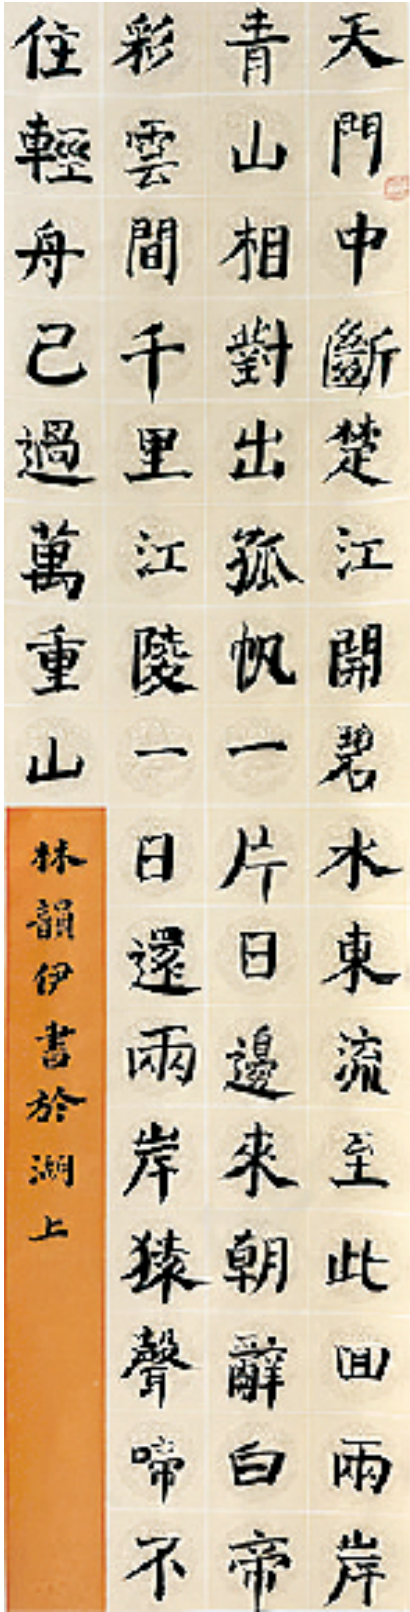 天門中斷楚江開碧水東流至此回兩岸
青山相對出孤帆一片日邊來朝辭白帝
彩雲間千里江陵一日還兩岸猿聲啼不
住輕舟已過萬重山
林韻伊書於湖上